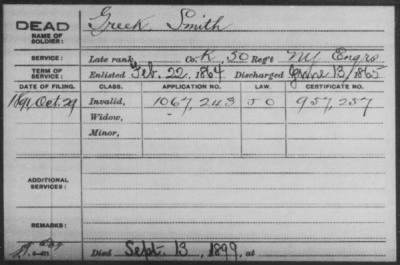 DEAD
NAME OF SOLDIER: Greek Smith
SERVICE: Late rank, Co. K, 50 Reg't NY Engrs.
TERM OF SERVICE: Enlisted Feb. 22, 1864 Discharged June 13/1865
DATE OF FILING. CLASS. APPLICATION NO. LAW. CERTIFICATE NO.
1891, Oct. 29 Invalid, 1067,243 J O 957,257
Widow, -
Minor,
ADDITIONAL SERVICES:
REMARKS:
Died Sept. 13, 1899, at